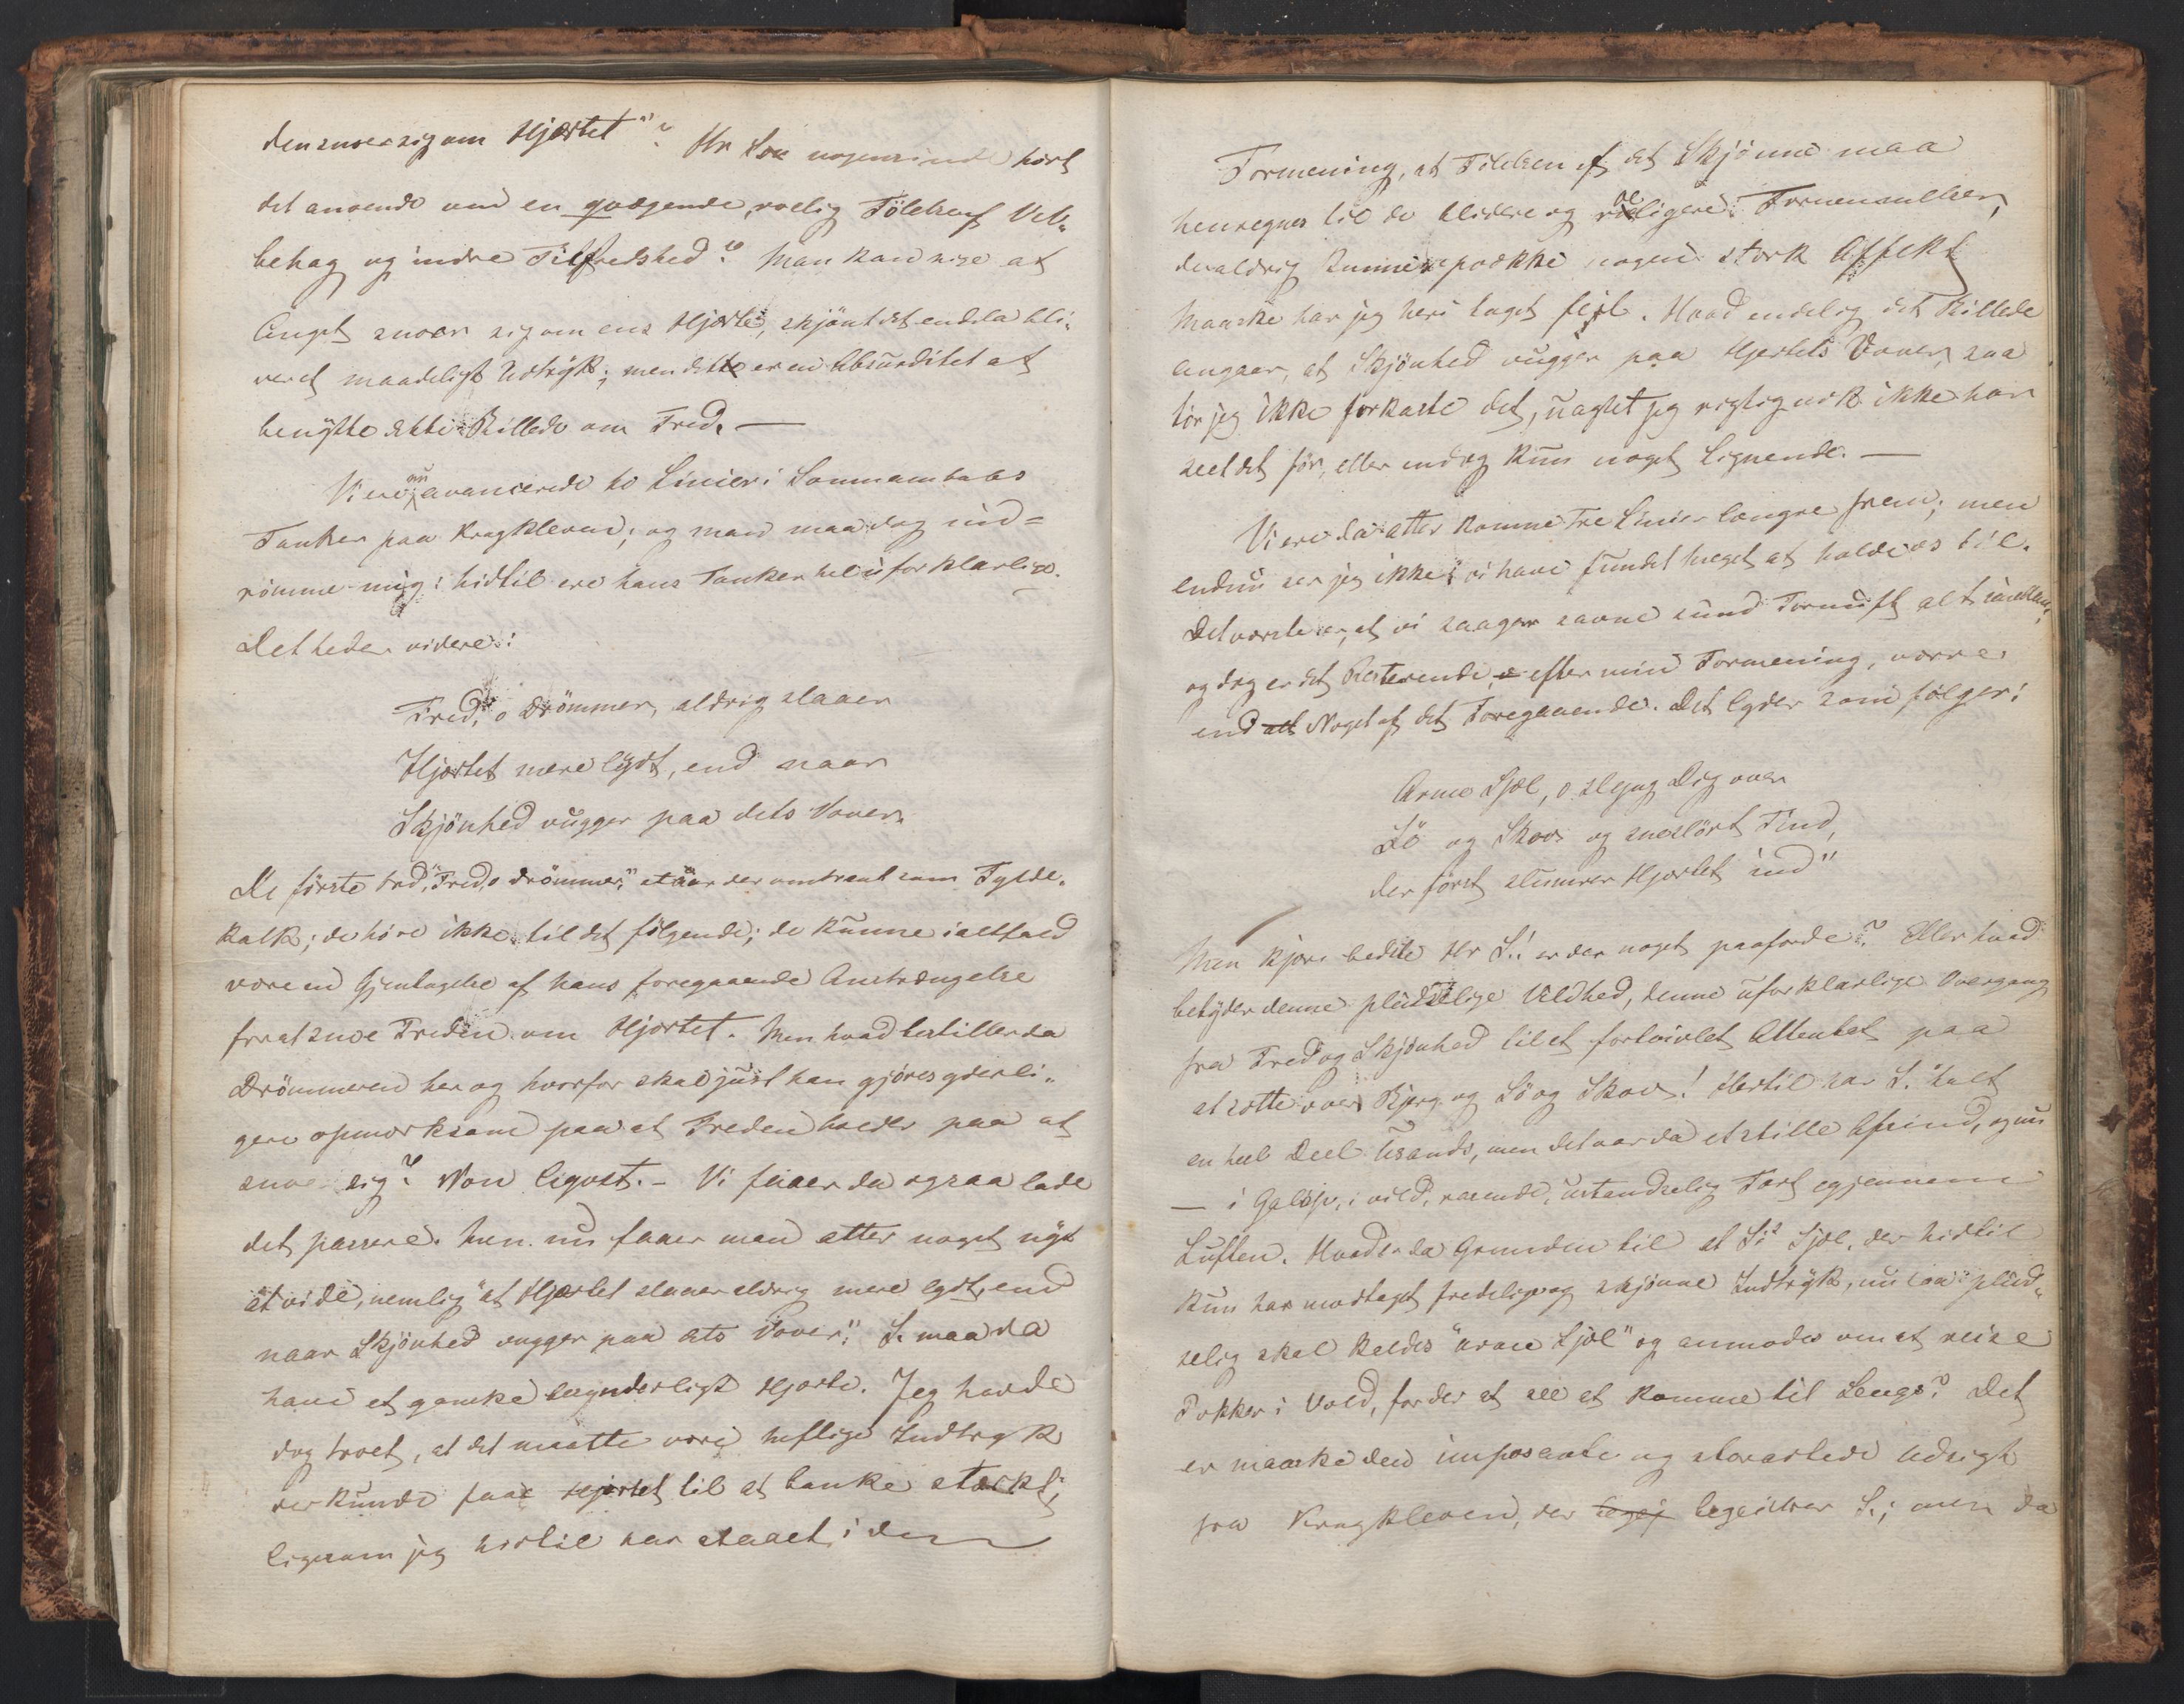 den snoer sig om Hjærtet"? Har han nogensinde hørt
det anvende om en qvægende, rolig Følelse af Vel„
behag og indre Tilfredshed? Man kan sige at
Angst snoer sig om ens Hjærte, skjønt det endda bli„
ver et maadeligt Udtryk; men dette er en Absurditet at
benytte dette Billede om Fred. —
Vi ere nu avancerede to Linier i Sonnambules
Tanker paa Krogkleven; og man maa dog ind=
rømme mig: hidtil ere hans Tanker hel uforklarlige.
Det heder videre:
Fred, o Drømmer, aldrig slaaer
Hjærtet mere lydt, end naar
Skjønhed vugger paa dets Vover.
De første Ord, "Fred, o Drømmer," staaer der omtrent som Fylde„
kalk; de høre ikke til det følgende; de kunne ialtfald
være en Gjentagelse af hans foregaaende Anstrængelse
for at snoe Freden om Hjærtet. Men hvad bestiller da
Drømmeren her og hvorfor skal just han gjøres yderli„
gere opmærksom paa at Freden holder paa at
snoe sig? Non liqvet. – Vi faaer da ogsaa lade
det passere. Men nu faaer man atter noget nyt
at vide, nemlig "at Hjærtet slaaer aldrig mere lydt, end
naar Skjønhed vugger paa dets Vover." S. maa da
have et ganske besynderligt Hjærte. Jeg havde
dog troet, at det maatte være heftige Indtryk
der kunde faae Hjærtet til at banke stærkt;
ligesom jeg hidtil har staaet i den
Formening, at Følelsen af det Skjønne maa
henregnes til de blidere og roligere Fornemmelser,
der aldrig kunne opvække nogen stærk Affekt
Maaske har jeg heri taget fejl. Hvad endelig det Billede
angaaer, at Skjønhed vugger paa Hjertets Vover, saa
tør jeg ikke forkaste det, uagtet jeg rigtignok ikke har
seet det før, eller endog kun noget Lignende. —
Vi ere da atter komne tre Linier længre frem; men
endnu ser jeg ikke, vi have fundet meget at holde os til.
Det værste er, at vi saagar savne sund Fornuft alt imellem,
og dog er det Resterende, efter min Formening, værre
end Noget af det Foregaaende. Det lyder som følger:
Arme Sjæl, o slyng Dig over
Sö og Skov og sneslört Tind,
der først slumrer Hjærtet ind"
Men kjære bedste Hr S.! er der noget paafærde? Eller hvad
betyder denne pludselige Vildhed, denne uforklarlige Overgang
fra Fred og Skjønhed til et fortvivlet Attentat paa
at sætte over Bjerg og Sö og Skov! Hertil har S. talt
en heel Deel Usands, men det var da et stille Afsind, og nu
— i Galop, i vild, rasende, ustandselig Fart igjennem
Luften. Hvad er da Grunden til at S.s Sjæl, der hidtil
kun har modtaget fredelige og skjønne Indtryk, nu saa plud„
selig skal kaldes "arme Sjæl" og anmodes om at reise
Pokker i Vold, for der at see at komme til Sengs? Det
er maaske den imposante og storartede Udsigt
fra Krogkleven, der begeistrer S.; men da